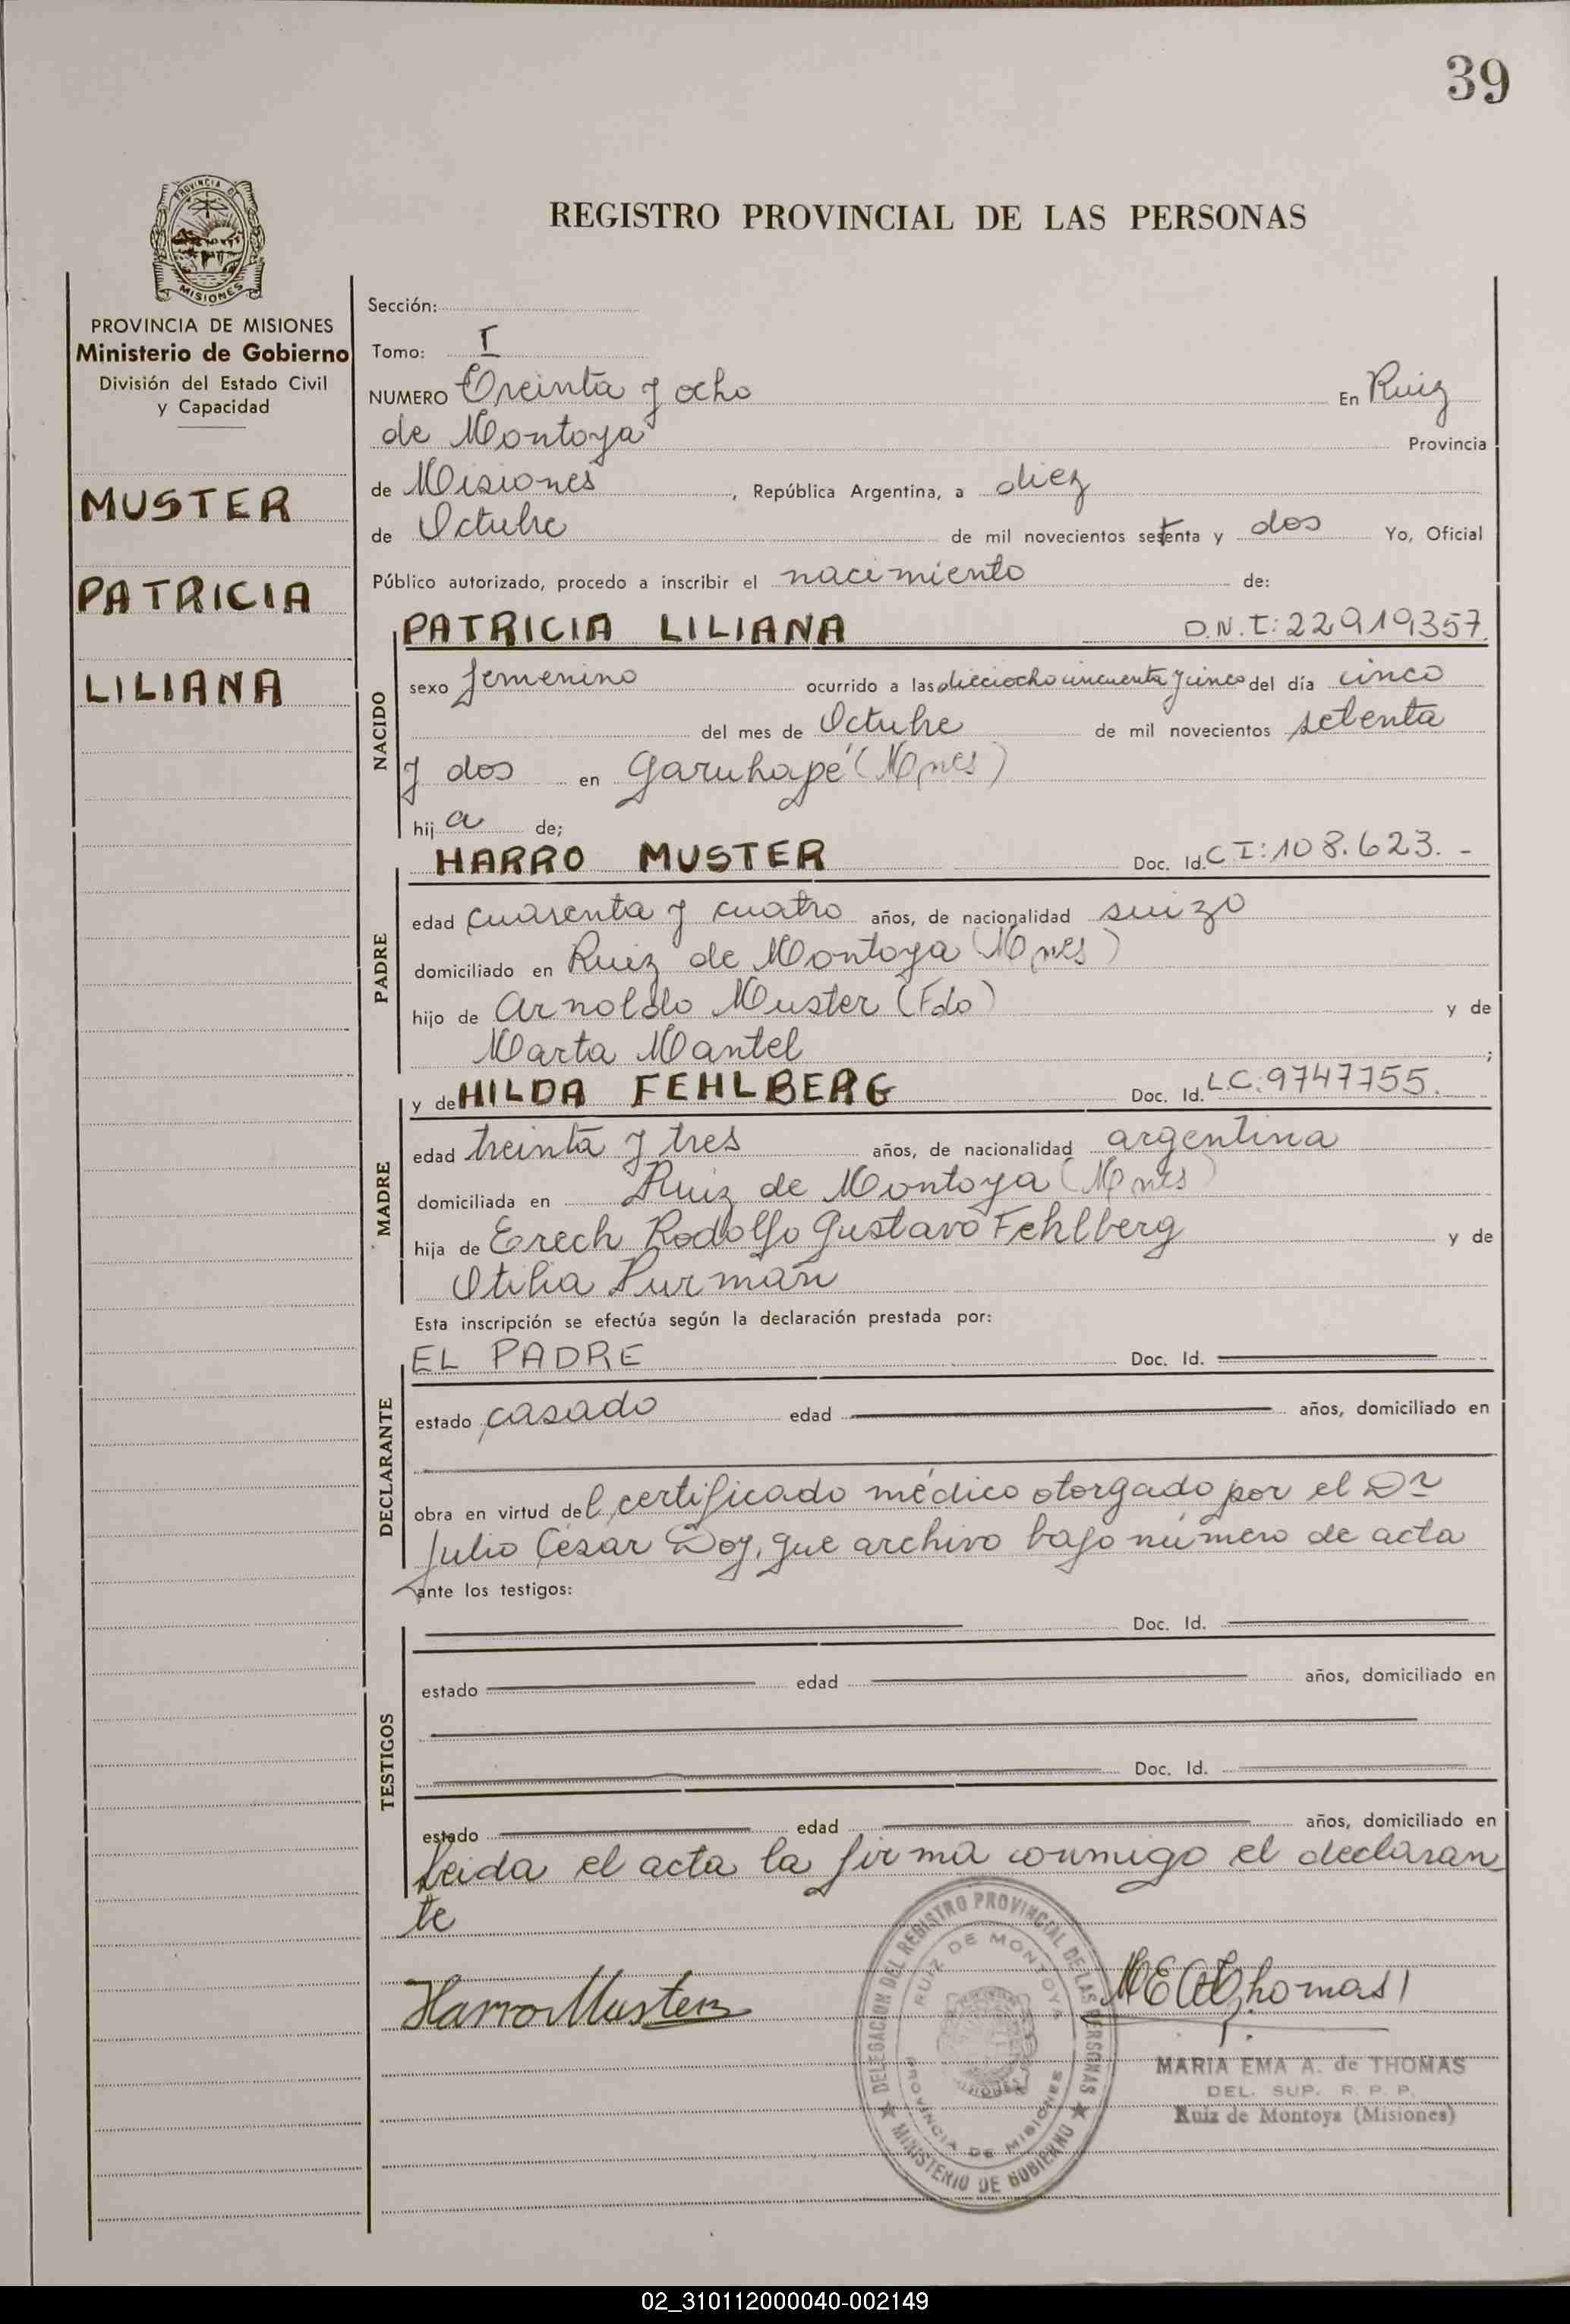 39
PROVINCIA DE
MISIONES
PROVINCIA DE MISIONES
Ministerio de Gobierno
División del Estado Civil
y Capacidad
MUSTER
PATRICIA
LILIANA
REGISTRO PROVINCIAL DE LAS PERSONAS
Sección:
Tomo: I
NUMERO Treinta y ocho En Ruiz
de Montoya Provincia
de Misiones, República Argentina, a diez
de Octubre de mil novecientos setenta y dos Yo, Oficial
Público autorizado, procedo a inscribir el nacimiento de:
NACIDO
PATRICIA LILIANA D.N.I: 22919357
sexo femenino ocurrido a las dieciocho cincuenta y cinco del día cinco
del mes de Octubre de mil novecientos setenta
y dos en Garuhapé (Mnes)
hij a de;
PADRE
HARRO MUSTER Doc. Id. CI: 108.623.-
edad cuarenta y cuatro años, de nacionalidad suizo
domiciliado en Ruiz de Montoya (Mnes)
hijo de Arnoldo Muster (Fdo) y de
Marta Mantel ;
MADRE
y de HILDA FEHLBERG Doc. Id. L.C: 9747755.
edad treinta y tres años, de nacionalidad argentina
domiciliada en Ruiz de Montoya (Mnes)
hija de Erech Rodolfo Gustavo Fehlberg y de
Otilia Purman
Esta inscripción se efectúa según la declaración prestada por:
DECLARANTE
EL PADRE Doc. Id.
estado casado edad años, domiciliado en
obra en virtud del certificado médico otorgado por el Dr
Julio César Doy, que archivo bajo número de acta
ante los testigos:
TESTIGOS
Doc. Id.
estado edad años, domiciliado en
Doc. Id.
estado edad años, domiciliado en
Leida el acta la firma conmigo el declaran
te
Harro Muster
M E A Thomas
DELEGACION DEL REGISTRO PROVINCIAL DE LAS PERSONAS
RUIZ DE MONTOYA
PROVINCIA DE MISIONES
MINISTERIO DE GOBIERNO
MARIA EMA A. de THOMAS
DEL. SUP. R. P. P.
Ruiz de Montoya (Misiones)
02_310112000040-002149